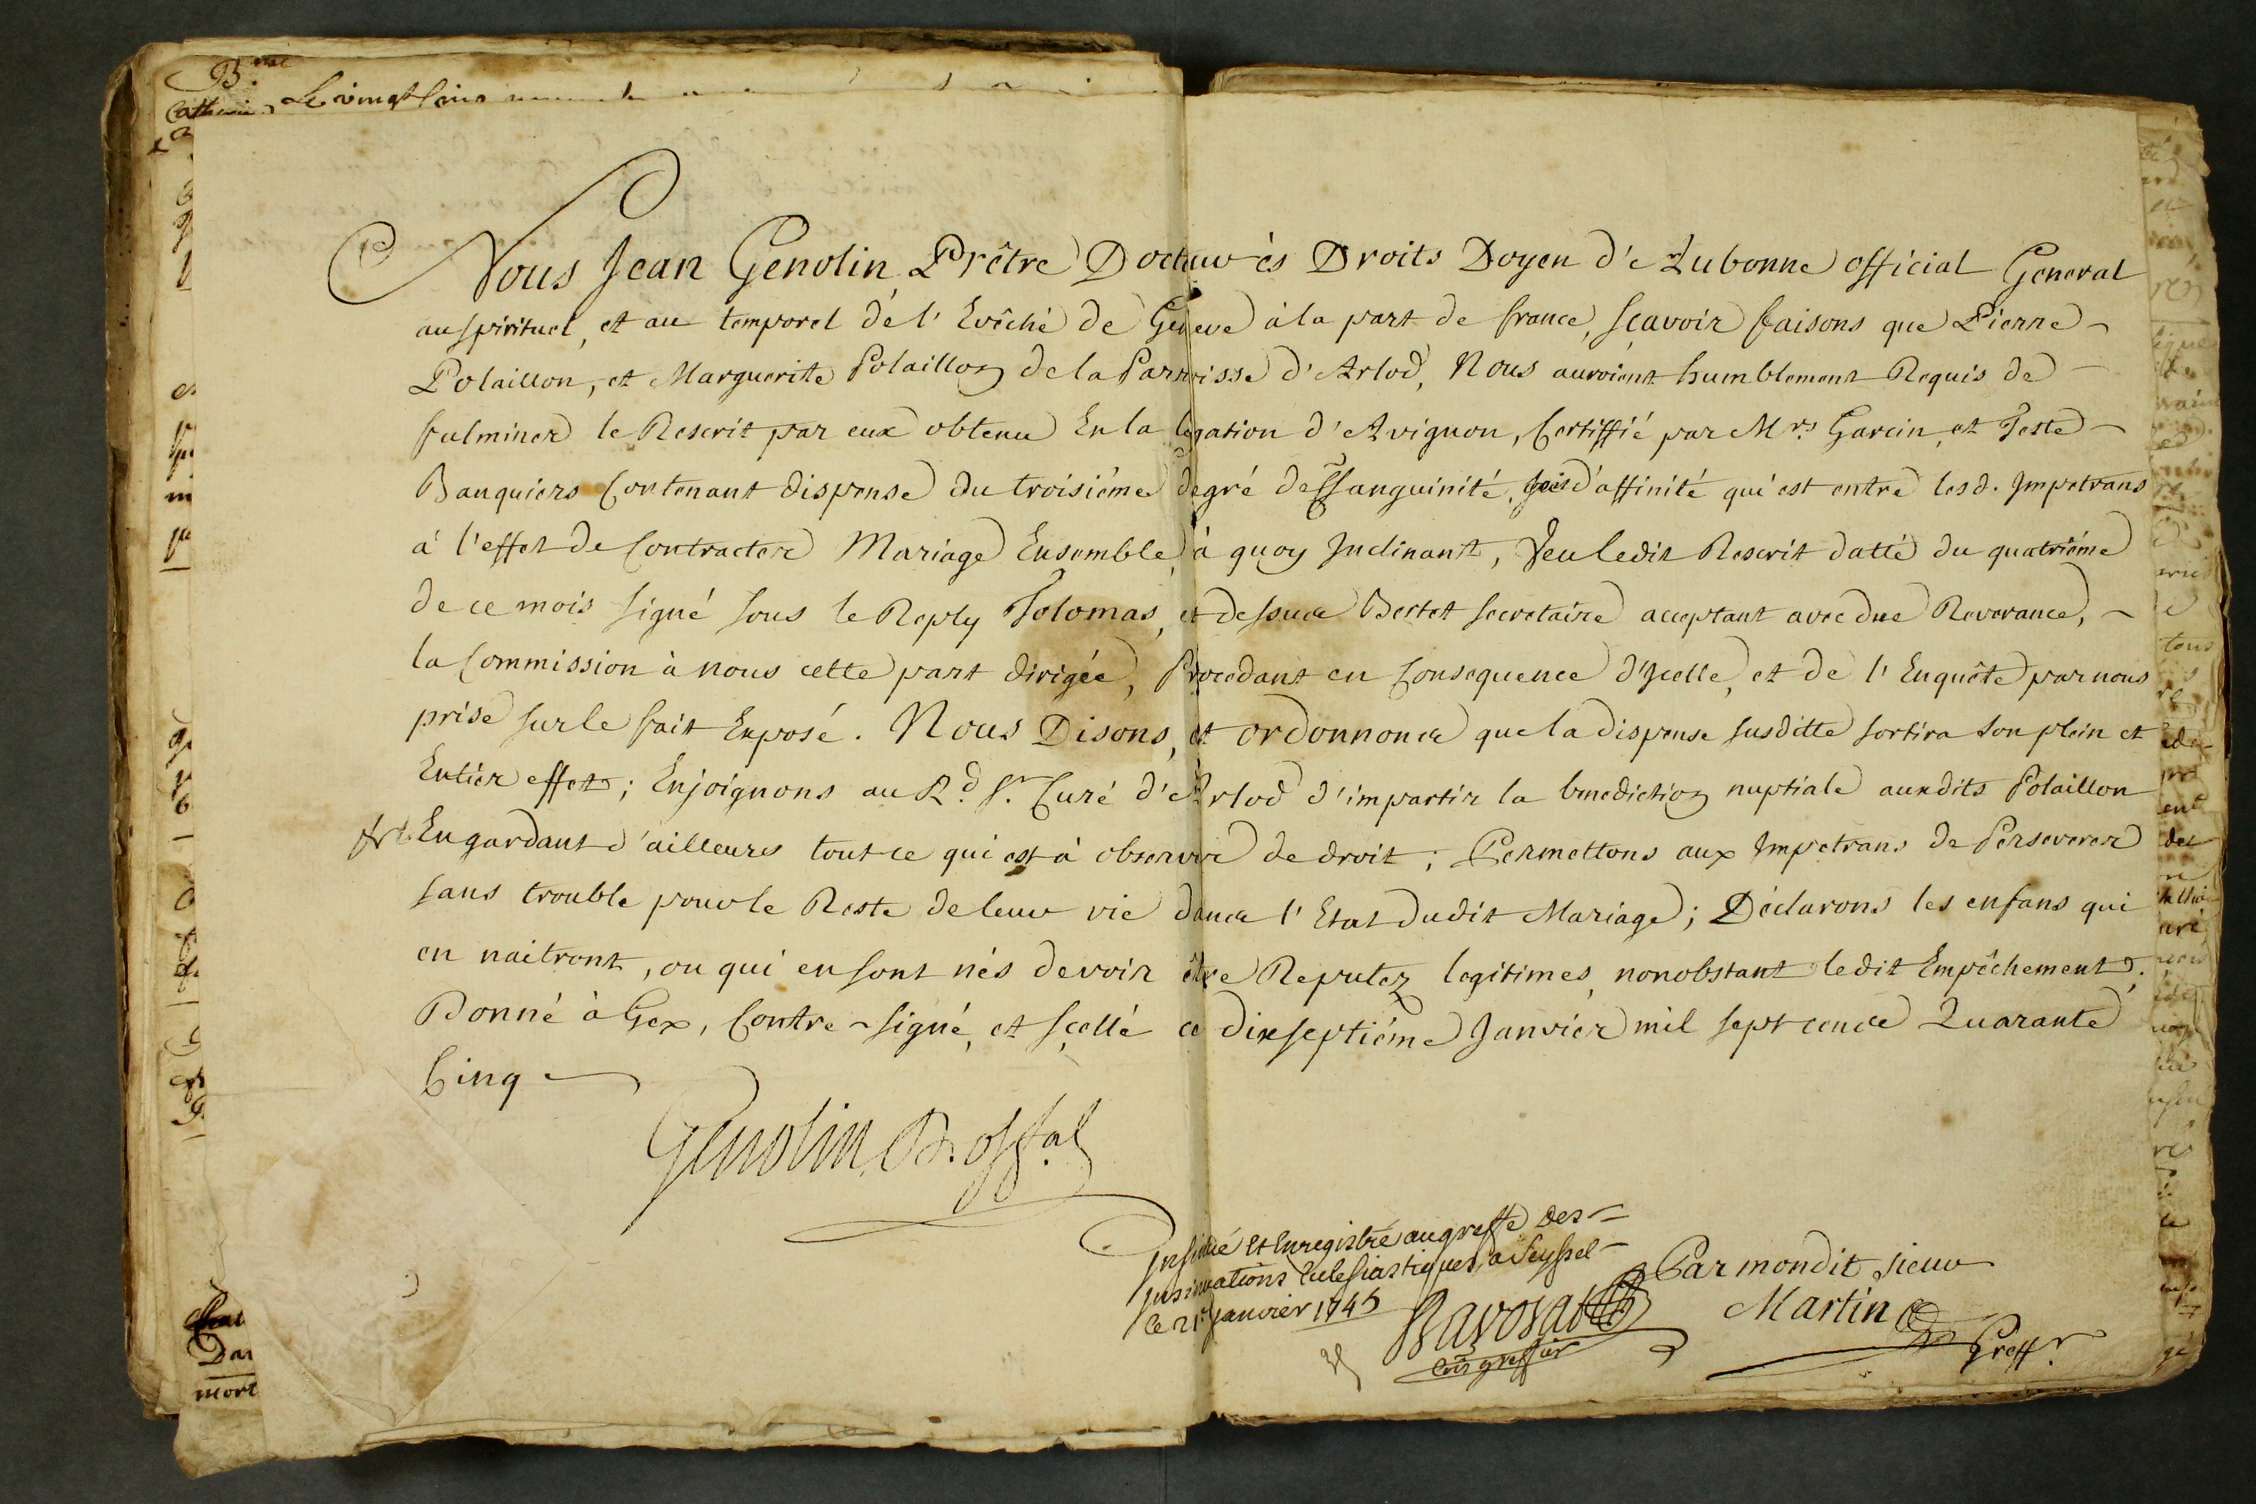 B.me
Catherine Le vingt cinq
Nous Jean Genolin Prêtre Docteur ès Droits Doyen d'Aubonne official General
au spirituel, et au temporel de l'Evêché de Geneve à la part de france, sçavoir faisons que Pierre
Polaillon, et Marguerite Polaillon de la Parroisse d'Arlod, Nous auroient humblement Requis de
fulminer le Rescrit par eux obtenu En la legation d'Avignon, Certiffié par Mrs. Garcin et Teste
Banquiers Contenant dispense du troisiéme degré de Csanguinité, d'affinité qui est entre lesd. Impetrans
à l'effet de Contracter Mariage Ensemble, à quoy Inclinant, Veu ledit Rescrit datté du quatriéme
de ce mois signé sous le Reply Tolomas, et dessus Bertet secretaire acceptant avec due Reverance,
la Commission à nous cette part dirigée, Procedant en Consequence d'Icelle, et de l'Enquête par nous
prise sur le fait Exposé. Nous Disons, et ordonnons que la dispense susditte sortira son plein et
Entier effet; Enjoignons au Rd. Sr. Curé d'Arlod d'impartir la benediction nuptiale auxdits Polaillon
En gardant d'ailleurs tout ce qui est à observer de droit; Permettons aux Impetrans de Perseverer
sans trouble pour le Reste de leur vie dans l'Etat dudit Mariage; Déclarons les enfans qui
en naitront, ou qui en sont nés devoir être Reputez legitimes, nonobstant ledit Empêchement;
Donné à Gex, Contre-signé, et scellé ce dixseptiéme Janvier mil sept cens Quarante
Cinq
Genolin off.al
Insinué et Enregistré au greffe des
Insinuations Eclesiastiques, a Seyssel
le 21e. Janvier 1745
Ravosat
greffier
Par mondit sieur
Martin
Greffr.
Dar
mort